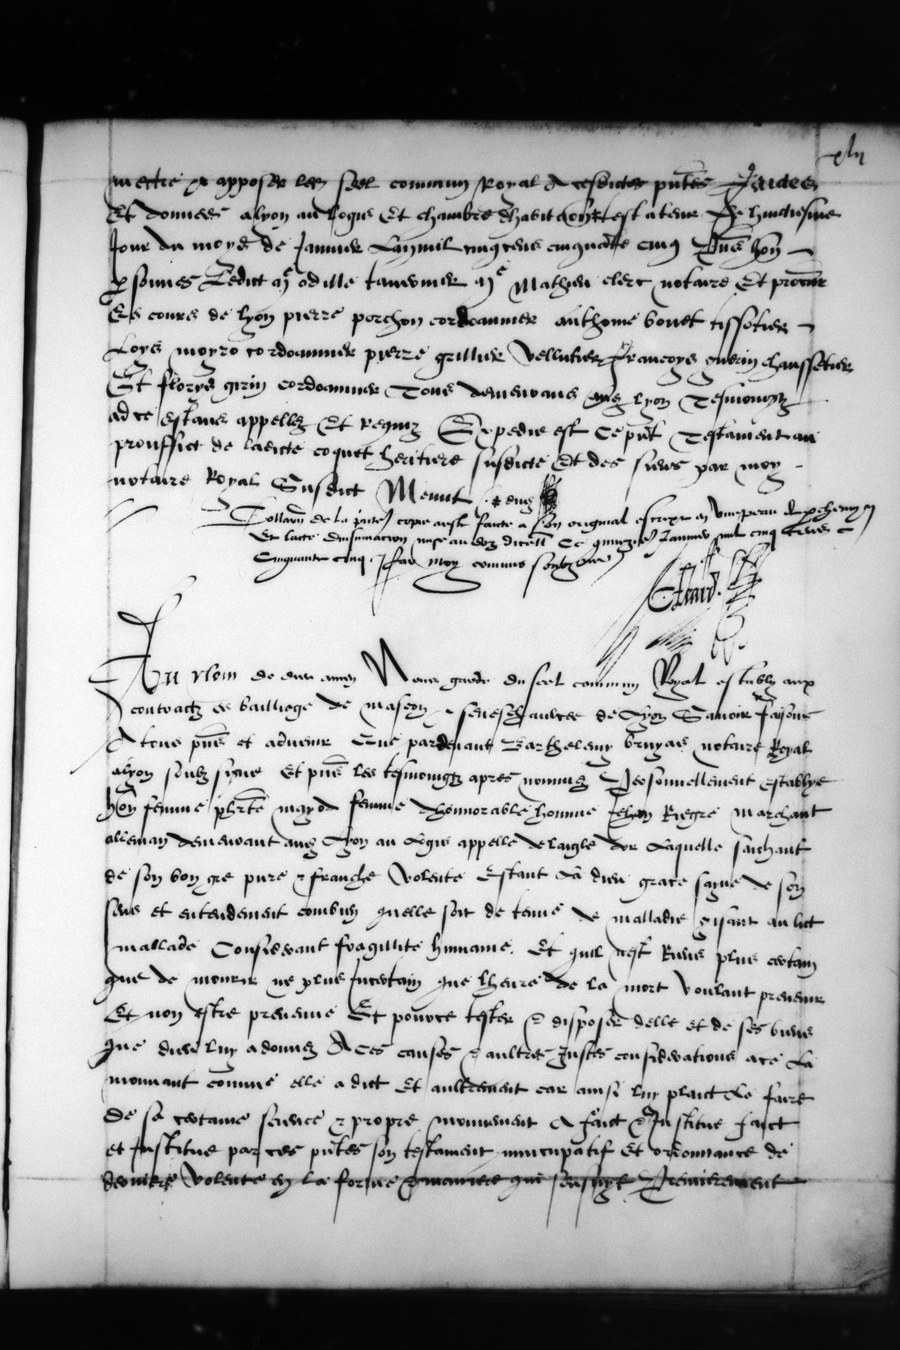 xlii
mectre et apposer led seel commun Royal A cesdictes pntes Faictes
Et donnees a lyon au logis Et chambre dhabitation test a teur Le huictiesme
Jour du moys de Janvier Lan mil cinq cens cinquate cinq Pns hon
psonnes Ledict me odille tanvonier me Mathieu clerc notaire Et procur
Es cours de lyon pierre perchon cordoannier anthome bonet tissotier
Loys moyro cordoannier pierre grillier vellutier Françoys guerin chaussetier
Et florys girin cordoannier Tous demeurans aud lyon Tesmoingtz
ad ce estans appellez Et Requiz Expedie est Ce pnt Testament au
prouffict de ladicte coquet heritiere susdicte Et des siens par moy
notaire Royal Susdict
Collaon de la pnte copie aeste faicte a son original escript en parchemyn
Et lacte dinsinuacion mise au doz dicell Ce Janvier mil cinq cens
Cinquante cinq Par moy commis soubzsigne
Au Nom de dieu amen Nous garde du seel commun Royal establyz aux
contractz es bailliage de mascon et seneschaulcee de Lyon Scavoir faisons
A tous pns et advenir Que pardevant Barthelemy bruyas notaire Royal
alyon soubz signe Et pns les tesmoingtz apres nommez Personnellement establye
hon femme mayod femme dhonnorable homme Jehan Riegre marchant
alleman demeurant aud Lyon au Logis appelle de laigle dor Laquelle saichant
de son bon gre pure et franche Volente Estant La dieu grace sayne de son
sens et entendement combien quelle soit detenue de malladie gisant au lict
mallade Considerant fragillite humaine. Et quil nest Riens plus certain
que de mourir ne plus incertain que lheure de la mort voulant prevenir
Et non estre prevenue Et pouvoir tester et disposer delle et de ses biens
que dieu luy a donnez A Ces causes et aultres Justes considerations ace La
mouvant comme elle a dict Et aultrement car ainsi luy plaict de faire
De sa certaine science et propre mouvement A faict et Institue faict
et Institue par ces pntes son testament nuncupatif Et ordonnance de
derniere Volente en la forme et maniere que sensuyt Premierement